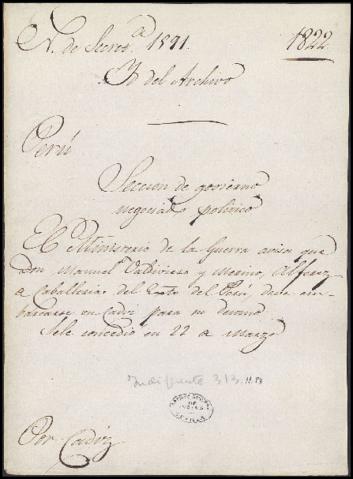 N. de Secres.ª 1591. 1822
Y del Archivo
Perú
Seccion de govierno
negociado politico
El Ministerio de la Guerra avisa que
Don Manuel Valdivieso y Merino, Alferez
de Caballeria del Exto. del Perú, deve em-
barcarse en Cadiz para su destino
Se le concedio en 22 de Marzo
Indiferente 313
ARCHIVO GENERAL DE INDIAS SEVILLA
Por Cadiz